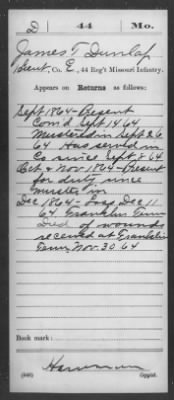 D 44 Mo.
James T. Dunlap
Lieut, Co. E, 44 Reg't Missouri Infantry.
Appears on Returns as follows:
Sept 1864 - Present
Com'd Sept 14 64
Mustered in Sept 26
64 Has served in
Co since Sept 8 64
Oct & Nov 1864 - Present
for duty since
muster in
Dec 1864 - Loss, Dec 11
64 Franklin Tenn
Died of wounds
received at Franklin
Tenn, Nov. 30. 64
Book mark:
(546) Copyist.